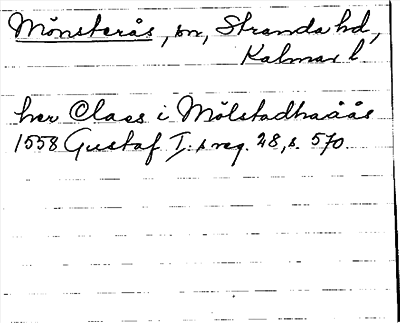 Mönsterås, sn, Stranda hd,
Kalmar l.
her Claes i Mölstadhaåås
1558 Gustaf I:s reg. 28, s. 570.